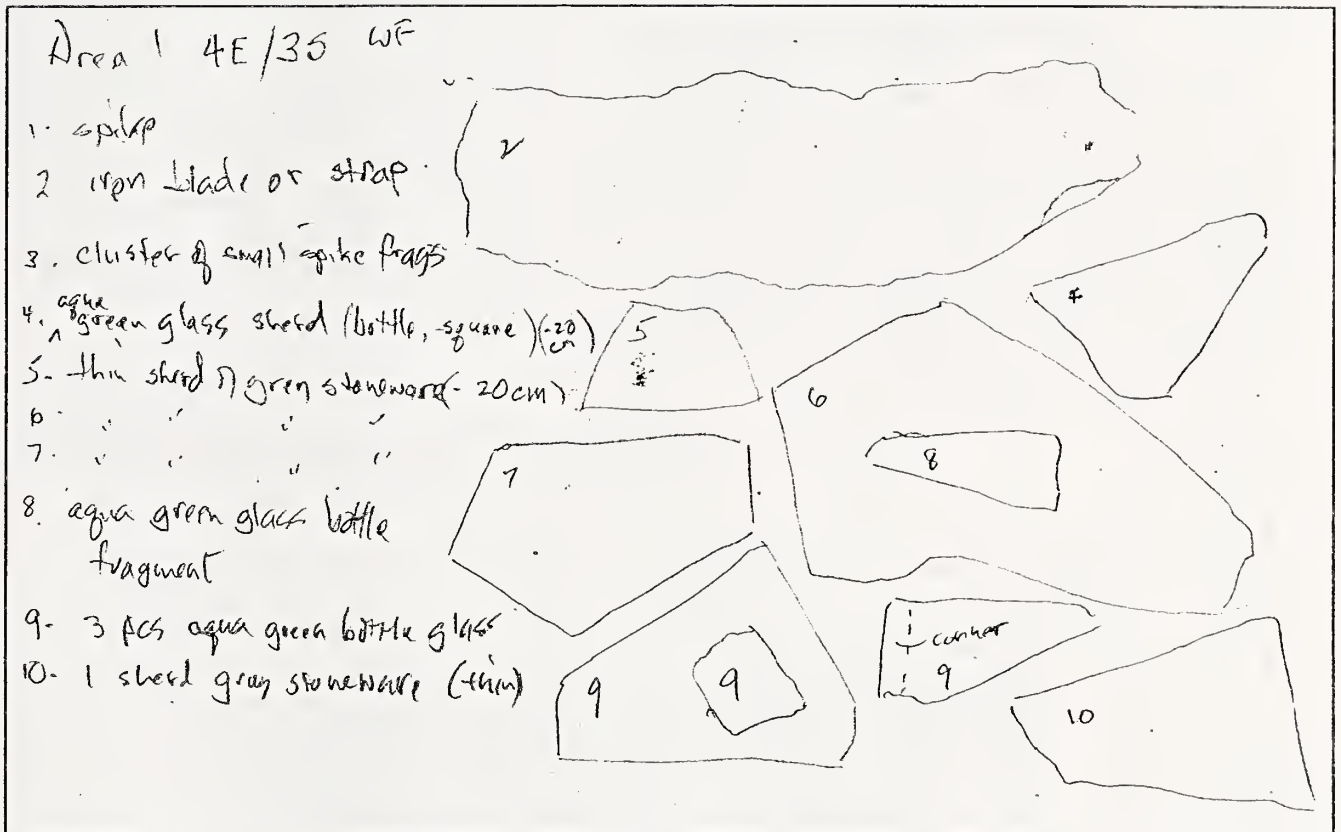 Area 1 4E/3S WF
1. spike
2 iron blade or strap
3. cluster of small spike frags
4. aqua green glass sherd (bottle, square) (-20 cm)
5- thin sherd of green stoneware (- 20cm)
6. " " " "
7. " " " "
8. aqua green glass bottle
fragment
9- 3 pcs aqua green bottle glass
10- 1 sherd gray stoneware (thin)
2
4
5
6
8
7
9
9
corner
9
10